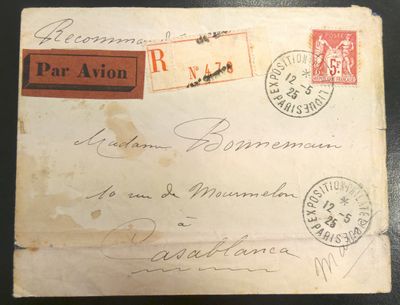 Recommandé
Par Avion
R
N° 478
POSTES
5F
EXPOSITION PHILATELIQUE
*
12 -5
25
PARIS
Madame Bonnemain
10 rue de Mourmelon
à
Casablanca
EXPOSITION PHILATELIQUE
*
12 -5
25
PARIS